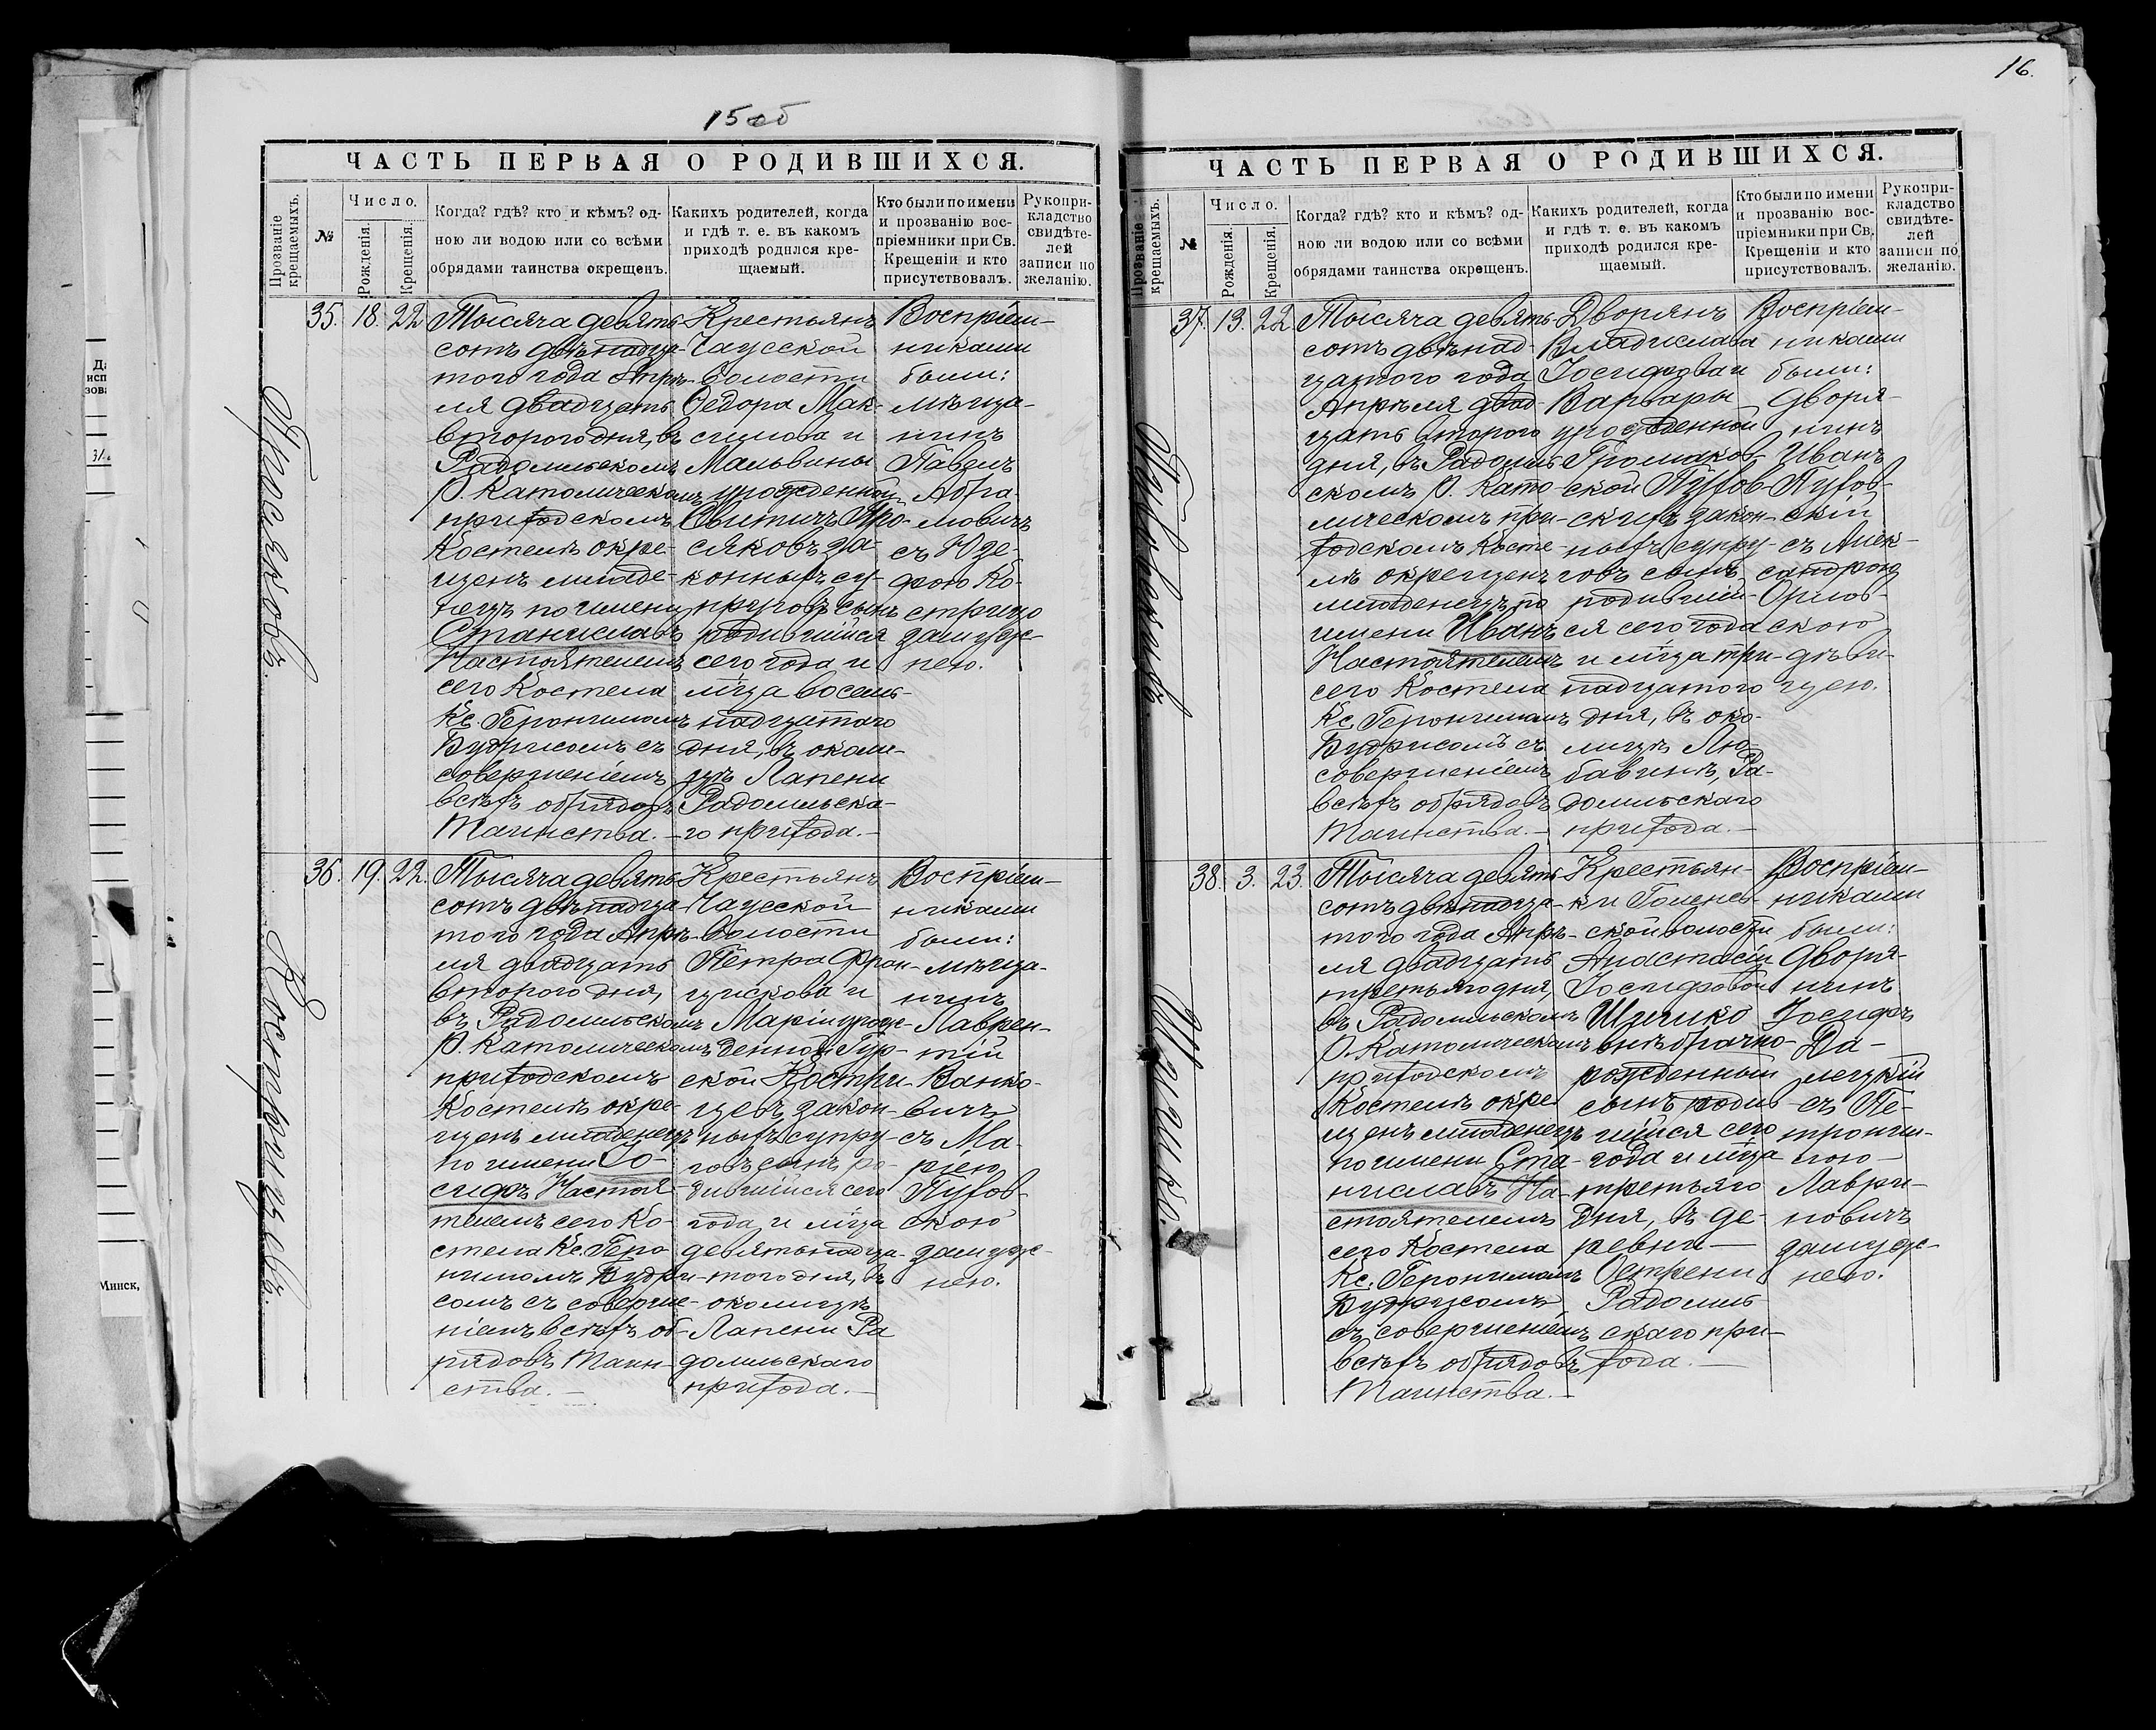 15 об
ЧАСТЬ ПЕРВАЯ О РОДИВШИХСЯ.
Прозваніе крещаемыхъ.
№
Число.
Рожденія.
Крещенія.
Когда? гдѣ? кто и кѣмъ? од-
ною ли водою или со всѣми
обрядами таинства окрещенъ.
Какихъ родителей, когда
и гдѣ т. е. въ какомъ
приходѣ родился кре-
щаемый.
Кто были по имени
и прозванію вос-
пріемники при Св.
Крещеніи и кто
присутствовалъ.
Рукопри-
кладство
свидѣте-
лей
записи по
желанію.
Просяковъ.
35. 18. 22.
Тысяча девять-
сотъ двѣнадца-
того года Апрѣ-
ля двадцать
второго дня, въ
Радомльскомъ
Р. Католическомъ
приходскомъ
Костелѣ окре-
щенъ младе-
нецъ по имени
Станиславъ
Настоятелемъ
сего Костела
Кс. Геронимомъ
Будрисомъ съ
совершеніемъ
всѣхъ обрядовъ
Таинства. —
Крестьянъ
Чаусской
волости
Ѳедора Мак-
симова и
Мальвины
урожденной
Свитичъ Про-
сяковъ за-
конныхъ су-
пруговъ сынъ
родившійся
сего года и
м͠ца восем-
надцатаго
дня, въ околи-
цѣ Лапени
Радомльска-
го прихода. —
Воспріем-
никами
были:
мѣща-
нинъ
Павелъ
Абра-
мовичъ
съ Юзе-
фою Ко-
стрицо
замуж-
нею.
Кострицевъ.
36. 19. 22.
Тысяча девять-
сотъ двѣнадца-
того года Апрѣ-
ля двадцать
второго дня,
въ Радомльскомъ
Р. Католическомъ
приходскомъ
Костелѣ окре-
щенъ младенецъ
по имени Іо-
сифъ Настоя-
телемъ сего Ко-
стела Кс. Геро-
нимомъ Будри-
сомъ съ соверше-
ніемъ всѣхъ об-
рядовъ Таин-
ства. —
Крестьянъ
Чаусской
волости
Петра Фран-
цискова и
Маріи урож-
денной Гур-
ской Костри-
цевъ закон-
ныхъ супру-
говъ сынъ ро-
дившійся сего
года и м͠ца
девятьнадца-
того дня, въ
околицѣ
Лапени Ра
домльскаго
прихода. —
Воспріем-
никами
были:
мѣща-
нинъ
Лаврен-
тій
Ванко-
вичъ
съ Ма-
ріею
Пухов-
скою
замуж-
нею.
16.
ЧАСТЬ ПЕРВАЯ О РОДИВШИХСЯ.
Прозваніе крещаемыхъ.
№
Число.
Рожденія.
Крещенія.
Когда? гдѣ? кто и кѣмъ? од-
ною ли водою или со всѣми
обрядами таинства окрещенъ.
Какихъ родителей, когда
и гдѣ т. е. въ какомъ
приходѣ родился кре-
щаемый.
Кто были по имени
и прозванію вос-
пріемники при Св.
Крещеніи и кто
присутствовалъ.
Рукопри-
кладство
свидѣте-
лей
записи по
желанію.
Пуховскихъ.
37. 13. 22.
Тысяча девять-
сотъ двѣнад-
цатого года
Апрѣля двад-
цать второго
дня, въ Радомль-
скомъ Р. Като-
лическомъ при-
ходскомъ Косте-
лѣ окрещенъ
младенецъ по
имени Иванъ
Настоятелемъ
сего Костела
Кс. Геронимомъ
Будрисомъ съ
совершеніемъ
всѣхъ обрядовъ
Таинства. —
Дворянъ
Владислава
Іосифова и
Варвары
урожденной
Громаков-
ской Пухов-
скихъ закон-
ныхъ супру-
говъ сынъ,
родивший-
ся сего года
и м͠ца три-
надцатого
дня, въ око-
лицѣ Лю-
бавинѣ, Ра-
домльскаго
прихода. —
Воспріем-
никами
были:
дворя-
нинъ
Иванъ
Пухов-
скій
съ Алек-
сандрою
Орлов-
скою
дѣви-
цею.
Шушко.
38. 3. 23.
Тысяча девять-
сотъ двѣнадца-
того года Апрѣ-
ля двадцать
третьяго дня,
въ Радомльскомъ
Р. Католическомъ
приходскомъ
Костелѣ окре
щенъ младенецъ
по имени Ста-
ниславъ На-
стоятелемъ
сего Костела
Кс. Геронимомъ
Будрисомъ
съ совершеніемъ
всѣхъ обрядовъ
Таинства. —
Крестьян-
ки
ской волости
Анастасіи
Іосифовой
внѣбрачно-
рожденный
сынъ родив-
шійся сего
года и м͠ца
третьяго
дня, въ де-
ревни —
Острени
Радомль
скаго при-
хода. —
Воспріем-
никами
были:
дворя-
нинъ
Іосифъ
Да-
лецкій
съ Пе-
тронел-
лою
Лаври-
новичъ
замуж-
нею.